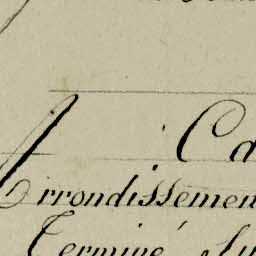 Ca
Arrondissemen
Terminé